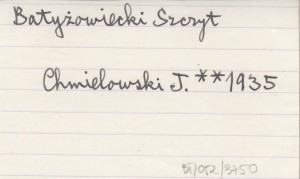 Batyżowiecki Szczyt
Chmielowski J. **1935
/052/3750